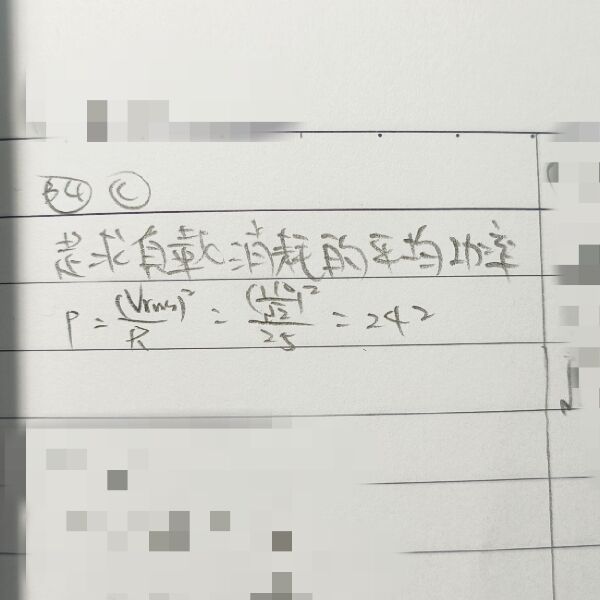 34 C
是求負載消耗的平均功率
P = (Vrms)² / R = (110/√2)² / 25 = 242